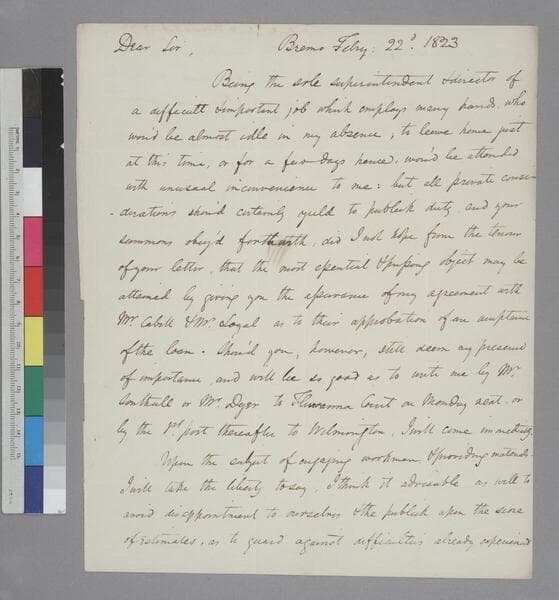 Dear Sir, Bremo Febry: 22d. 1823
Being the sole superintendent & director of
a difficult & important job which employs many hands, who
wou'd be almost idle in my absence, to leave home just
at this time, or for a few days hence, wou'd be attended
with unusual inconvenience to me: but all private consi-
-derations shou'd certainly yield to publick duty, and your
summons obey'd forthwith, did I not hope from the tenour
of your letter, that the most essential & pressing object may be
attained by giving you the assurance of my agreement with
Mr. Cabell & Mr. Loyal as to their approbation of an acceptance
of the loan. Shou'd you, however, still deem my presence
of importance, and will be so good as to write me by Mr.
Southall or Mr. Dyer to Fluvanna Court on Monday next, or
by the 1st. post thereafter to Wilmington, I will come immediately.
Upon the subject of engaging workmen & providing materials
I will take the liberty to say, I think it adviseable as well to
avoid disappointment to ourselves & the publick upon the score
of estimates, as to guard against difficulties already experienced